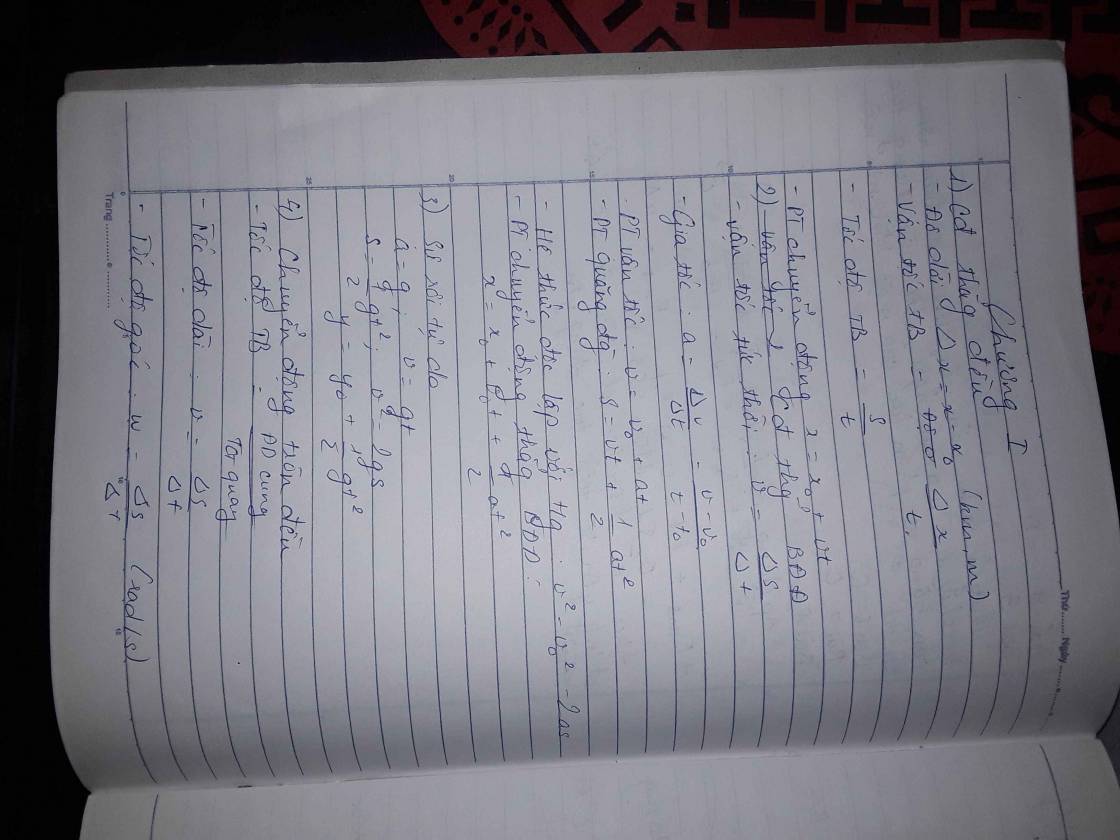 Thứ ....... Ngày ........
Chương I
1) Cđ thẳng đều
- Độ dài Δx = x - x₀ (km, m)
- Vận tốc TB = Δx / t
- Tốc độ TB = s / t
- PT chuyển động x = x₀ + vt
2) Cđ thg BĐĐ
- vận tốc tức thời : v = Δs / Δt
- Gia tốc : a = Δv / Δt = v - v₀ / t - t₀
- PT vân tốc : v = v₀ + at
- PT quãng đg : s = vt + 1/2 at²
- Hệ thức độc lập với tg : v² - v₀² = 2as
- PT chuyển động thẳg BĐĐ :
x = x₀ + v₀t + 1/2 at²
3) Sự rơi tự do
a = g ; v = gt
s = 1/2 gt² ; v² = 2gs
y = y₀ + 1/2 gt²
4) Chuyển động tròn đều
- Tốc độ TB = ĐD cung / quay
- Tốc độ dài : v = Δs / Δt
- Tốc độ góc : w = Δs / Δt (rad/s)
Trang ........